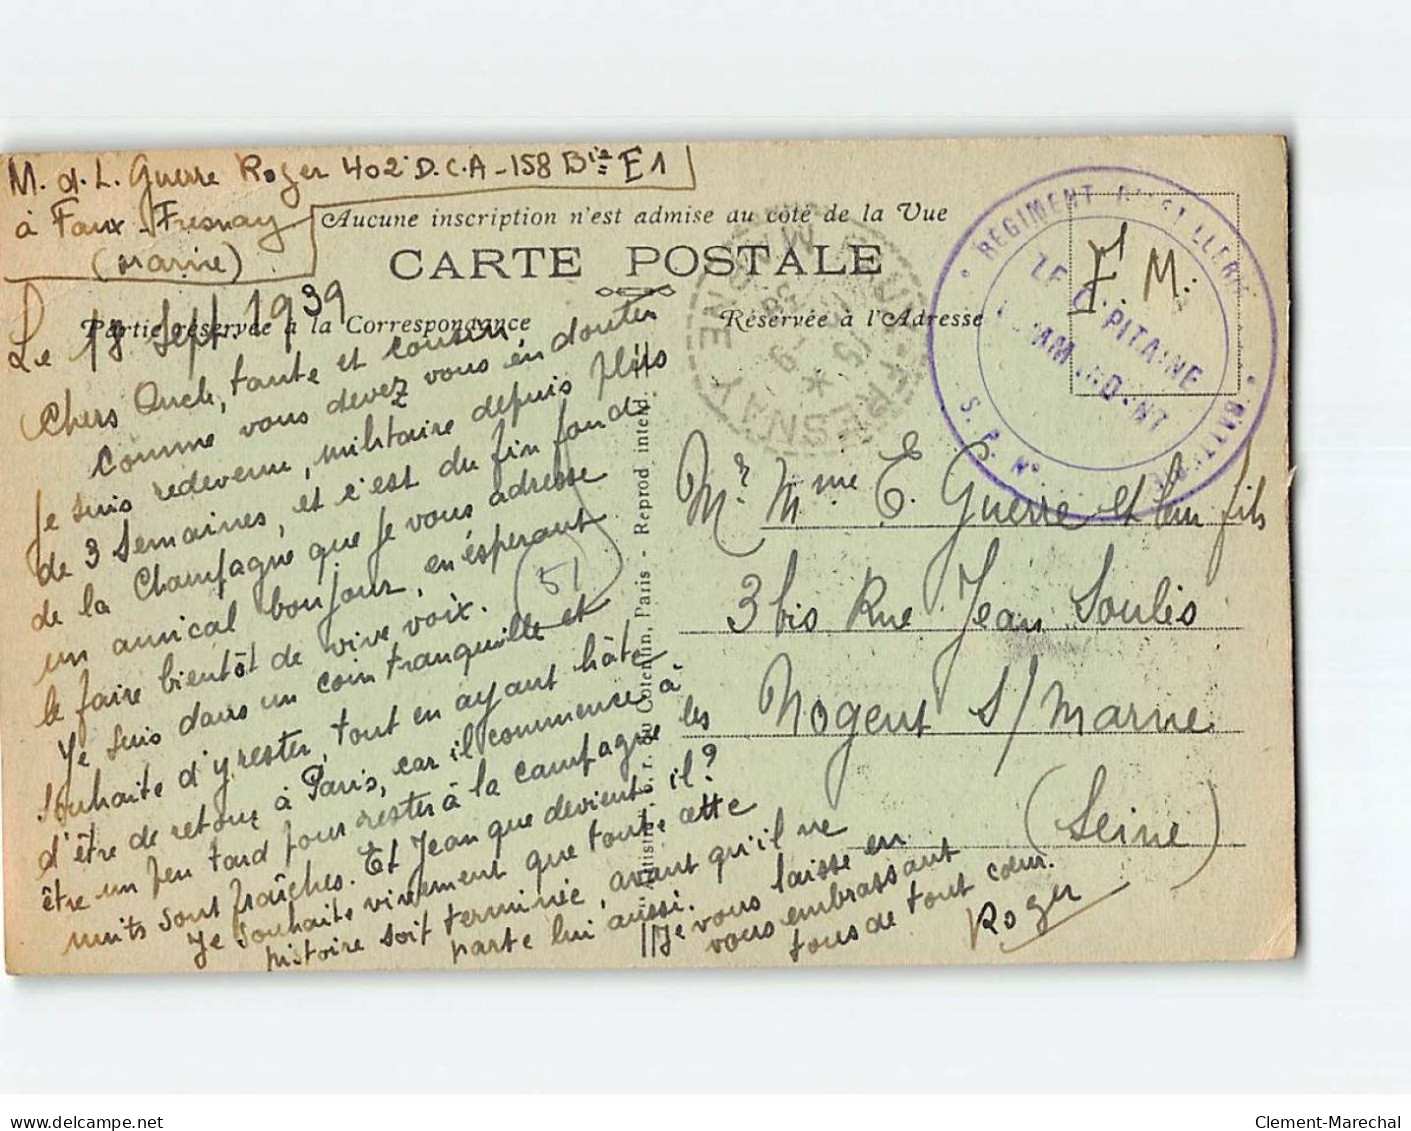 M. d. L. Guerre Roger 402° D.C.A - 158 Bie E1
à Faux-Fresnay
(Marne)
Aucune inscription n'est admise au côté de la Vue
CARTE POSTALE
Partie réservée à la Correspondance
Réservée à l'Adresse
Le 18 Sept. 1939
Chers Oncle, tante et cousin
Comme vous devez vous en douter
je suis redevenu, militaire depuis plus
de 3 Semaines, et c'est du fin fond
de la Champagne que je vous adresse
un amical bonjour, en espérant
le faire bientôt de vive voix.
Je suis dans un coin tranquille et
souhaite d'y rester, tout en ayant hâte
d'être de retour à Paris, car il commence à
être un peu tard pour rester à la campagne les
nuits sont fraîches. Et Jean que devient il?
Je souhaite vivement que toute cette
histoire soit terminée, avant qu'il ne
parte lui aussi.
Je vous laisse en
vous embrassant
tous de tout cœur.
Roger
51
Reprod. interd.
Paris
F. M.
RÉGIMENT
LE CAPITAINE
S. P. N°
FAUX-FRESNAY
MARNE
Mr Mme E. Guerre et leur fils
3 bis Rue Jean Soulès
Nogent s/Marne
(Seine)
www.delcampe.net
Clement-Marechal